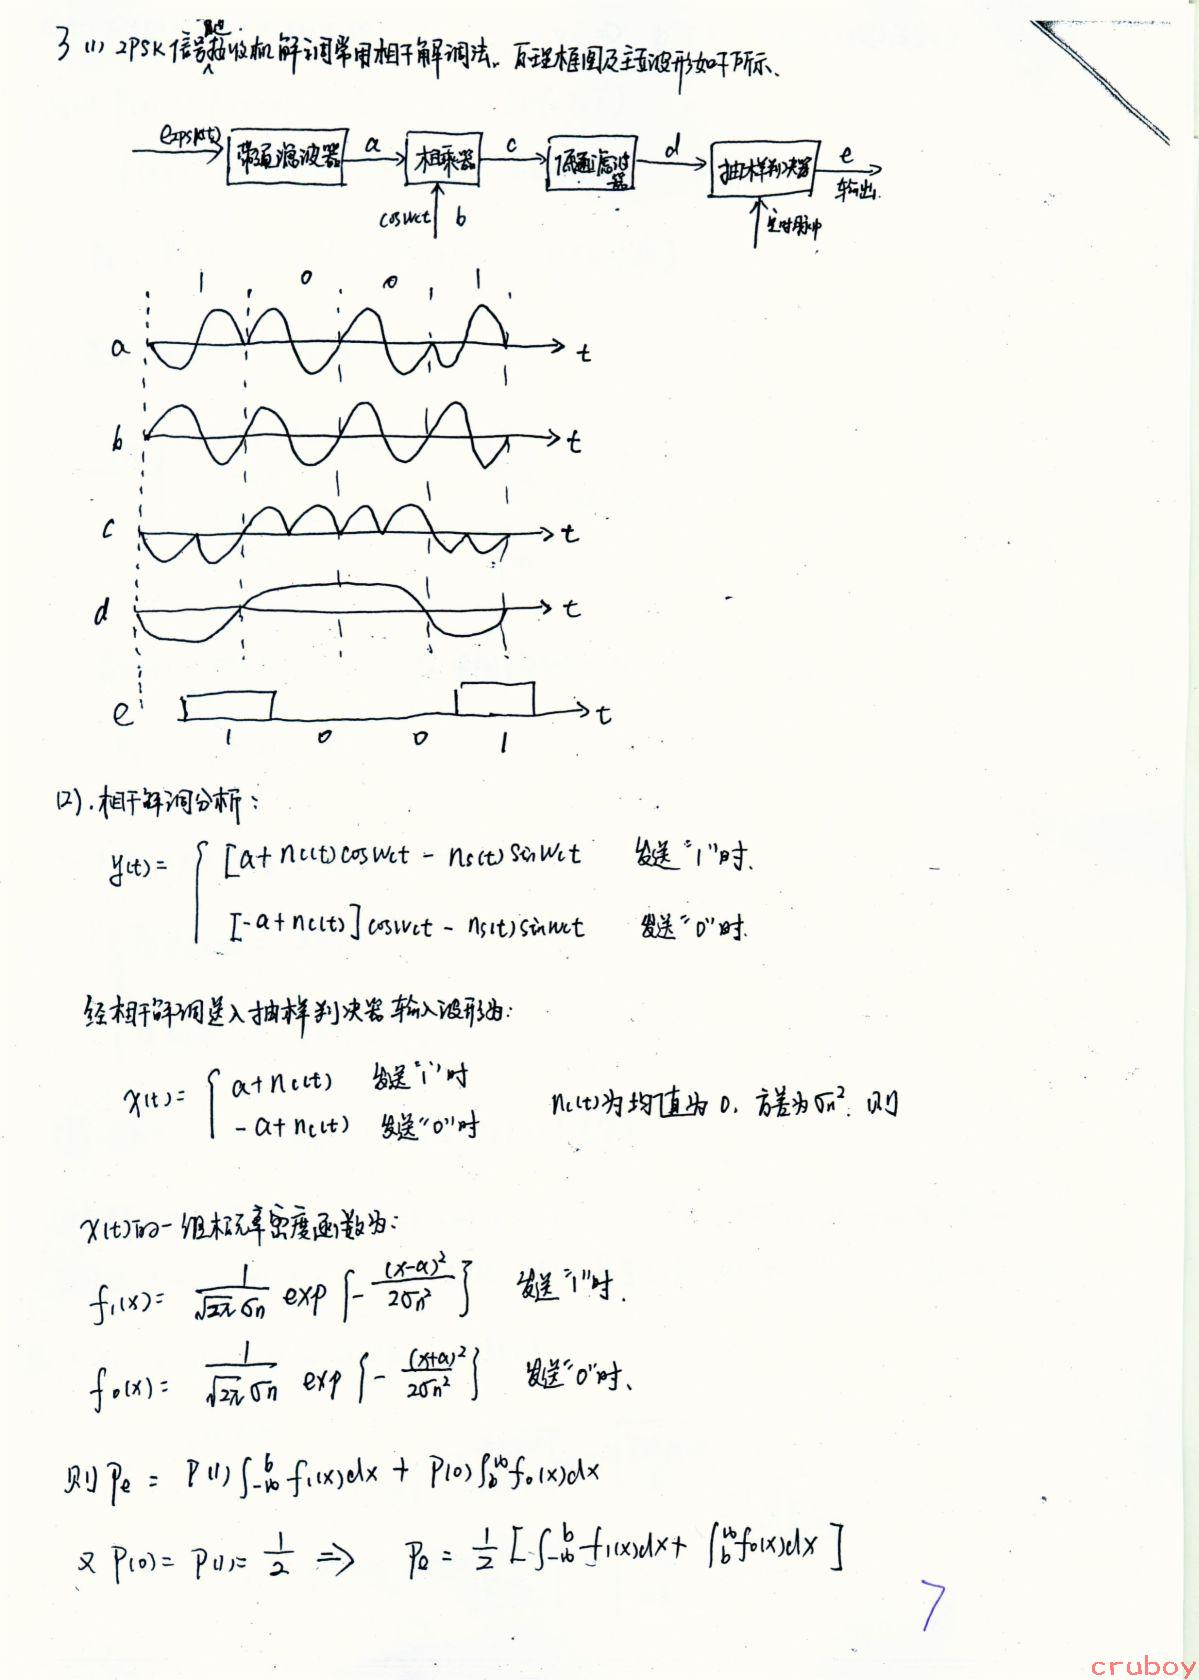 3 (1) 2PSK信号接收机解调常用相干解调法. 原理框图及主要波形如下所示.
e2PSK(t) 带通滤波器 a 相乘器 c 低通滤波器 d 抽样判决器 e 输出
cosWct b 定时脉冲
1 0 0 1
a t
b t
c t
d t
e t
1 0 0 1
(2). 相干解调分析:
y(t)= { [a+nc(t)cosWct - ns(t)sinWct 发送"1"时.
[-a+nc(t)]cosWct - ns(t)sinWct 发送"0"时.
经相干解调送入抽样判决器输入波形为:
x(t)= { a+nc(t) 发送"1"时
-a+nc(t) 发送"0"时
nc(t)为均值为0, 方差为σn². 则
x(t)的一维概率密度函数为:
f1(x)= 1/(√2π σn) exp{-(x-a)²/2σn²} 发送"1"时.
f0(x)= 1/(√2π σn) exp{-(x+a)²/2σn²} 发送"0"时.
则 Pe = P(1)∫_{-∞}^{b} f1(x)dx + P(0)∫_{b}^{∞} f0(x)dx
又 P(0)= P(1)= 1/2 ⇒ Pe = 1/2 [∫_{-∞}^{b} f1(x)dx+ ∫_{b}^{∞} f0(x)dx]
7
cruboy